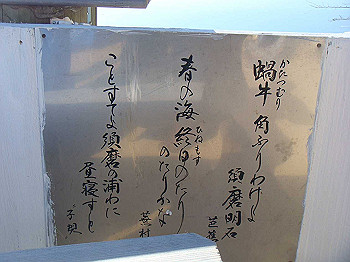 かたつむり
蝸牛 角ふりわけよ
須磨明石
芭蕉
春の海 終日のたり
ひねもす
のたりかな
蕪村
ことづてよ須磨の浦わに
昼寝すと
子規